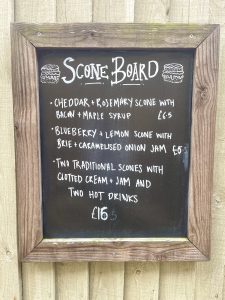 SCONE BOARD
• CHEDDAR + ROSEMARY SCONE WITH
BACON + MAPLE SYRUP £6.5
• BLUEBERRY + LEMON SCONE WITH
BRIE + CARAMELISED ONION JAM
• TWO TRADITIONAL SCONES WITH
CLOTTED CREAM + JAM AND
TWO HOT DRINKS